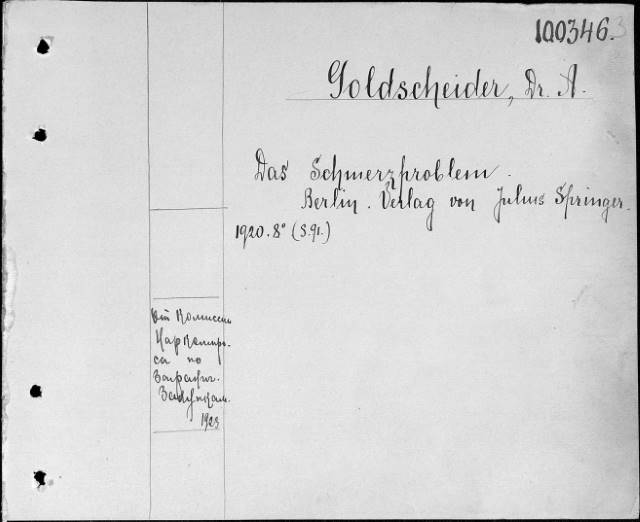 100346.
Goldscheider, Dr. A.
Das Schmerzproblem.
Berlin. Verlag von Julius Springer.
1920. 8° (S. 91.)
От Комиссии
Наркомпро-
са по
Заранич.
Закупкам.
1923